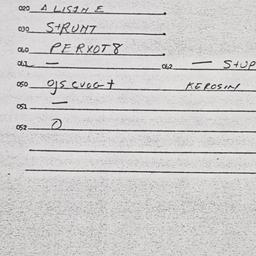 020 A LISINE
030 STRUNT
040 PERXOT8
041 — 042 — STUP
050 OJSCVOGT KEROSIN
051 —
052 O